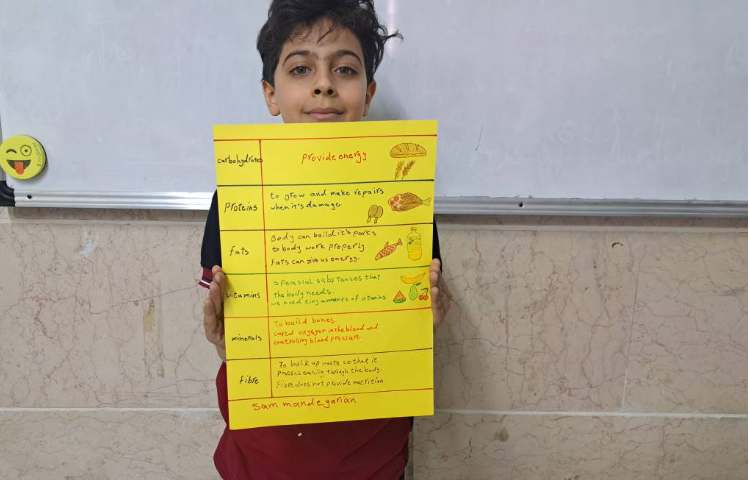 carbohydrates
provide energy
proteins
to grow and make repairs
when it's damage.
fats
Body can build it's parts
to body work properly
fats can give us energy.
vitamins
special substances that
the body needs.
we need tiny amounts of vitamins
minerals
To build bones
oxygen in the blood and
controlling blood pressure
fibre
To build up waste so that it
passes easily through the body.
Fibre does not provide nutrition
sam mandegarian